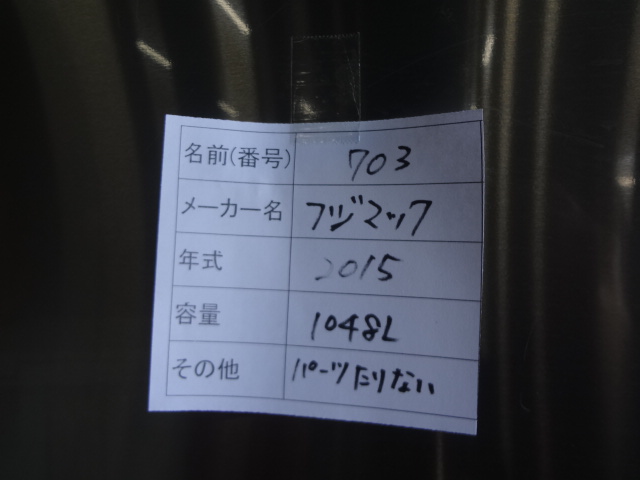 名前(番号) 703
メーカー名 フジマック
年式 2015
容量 1048L
その他 パーツたりない